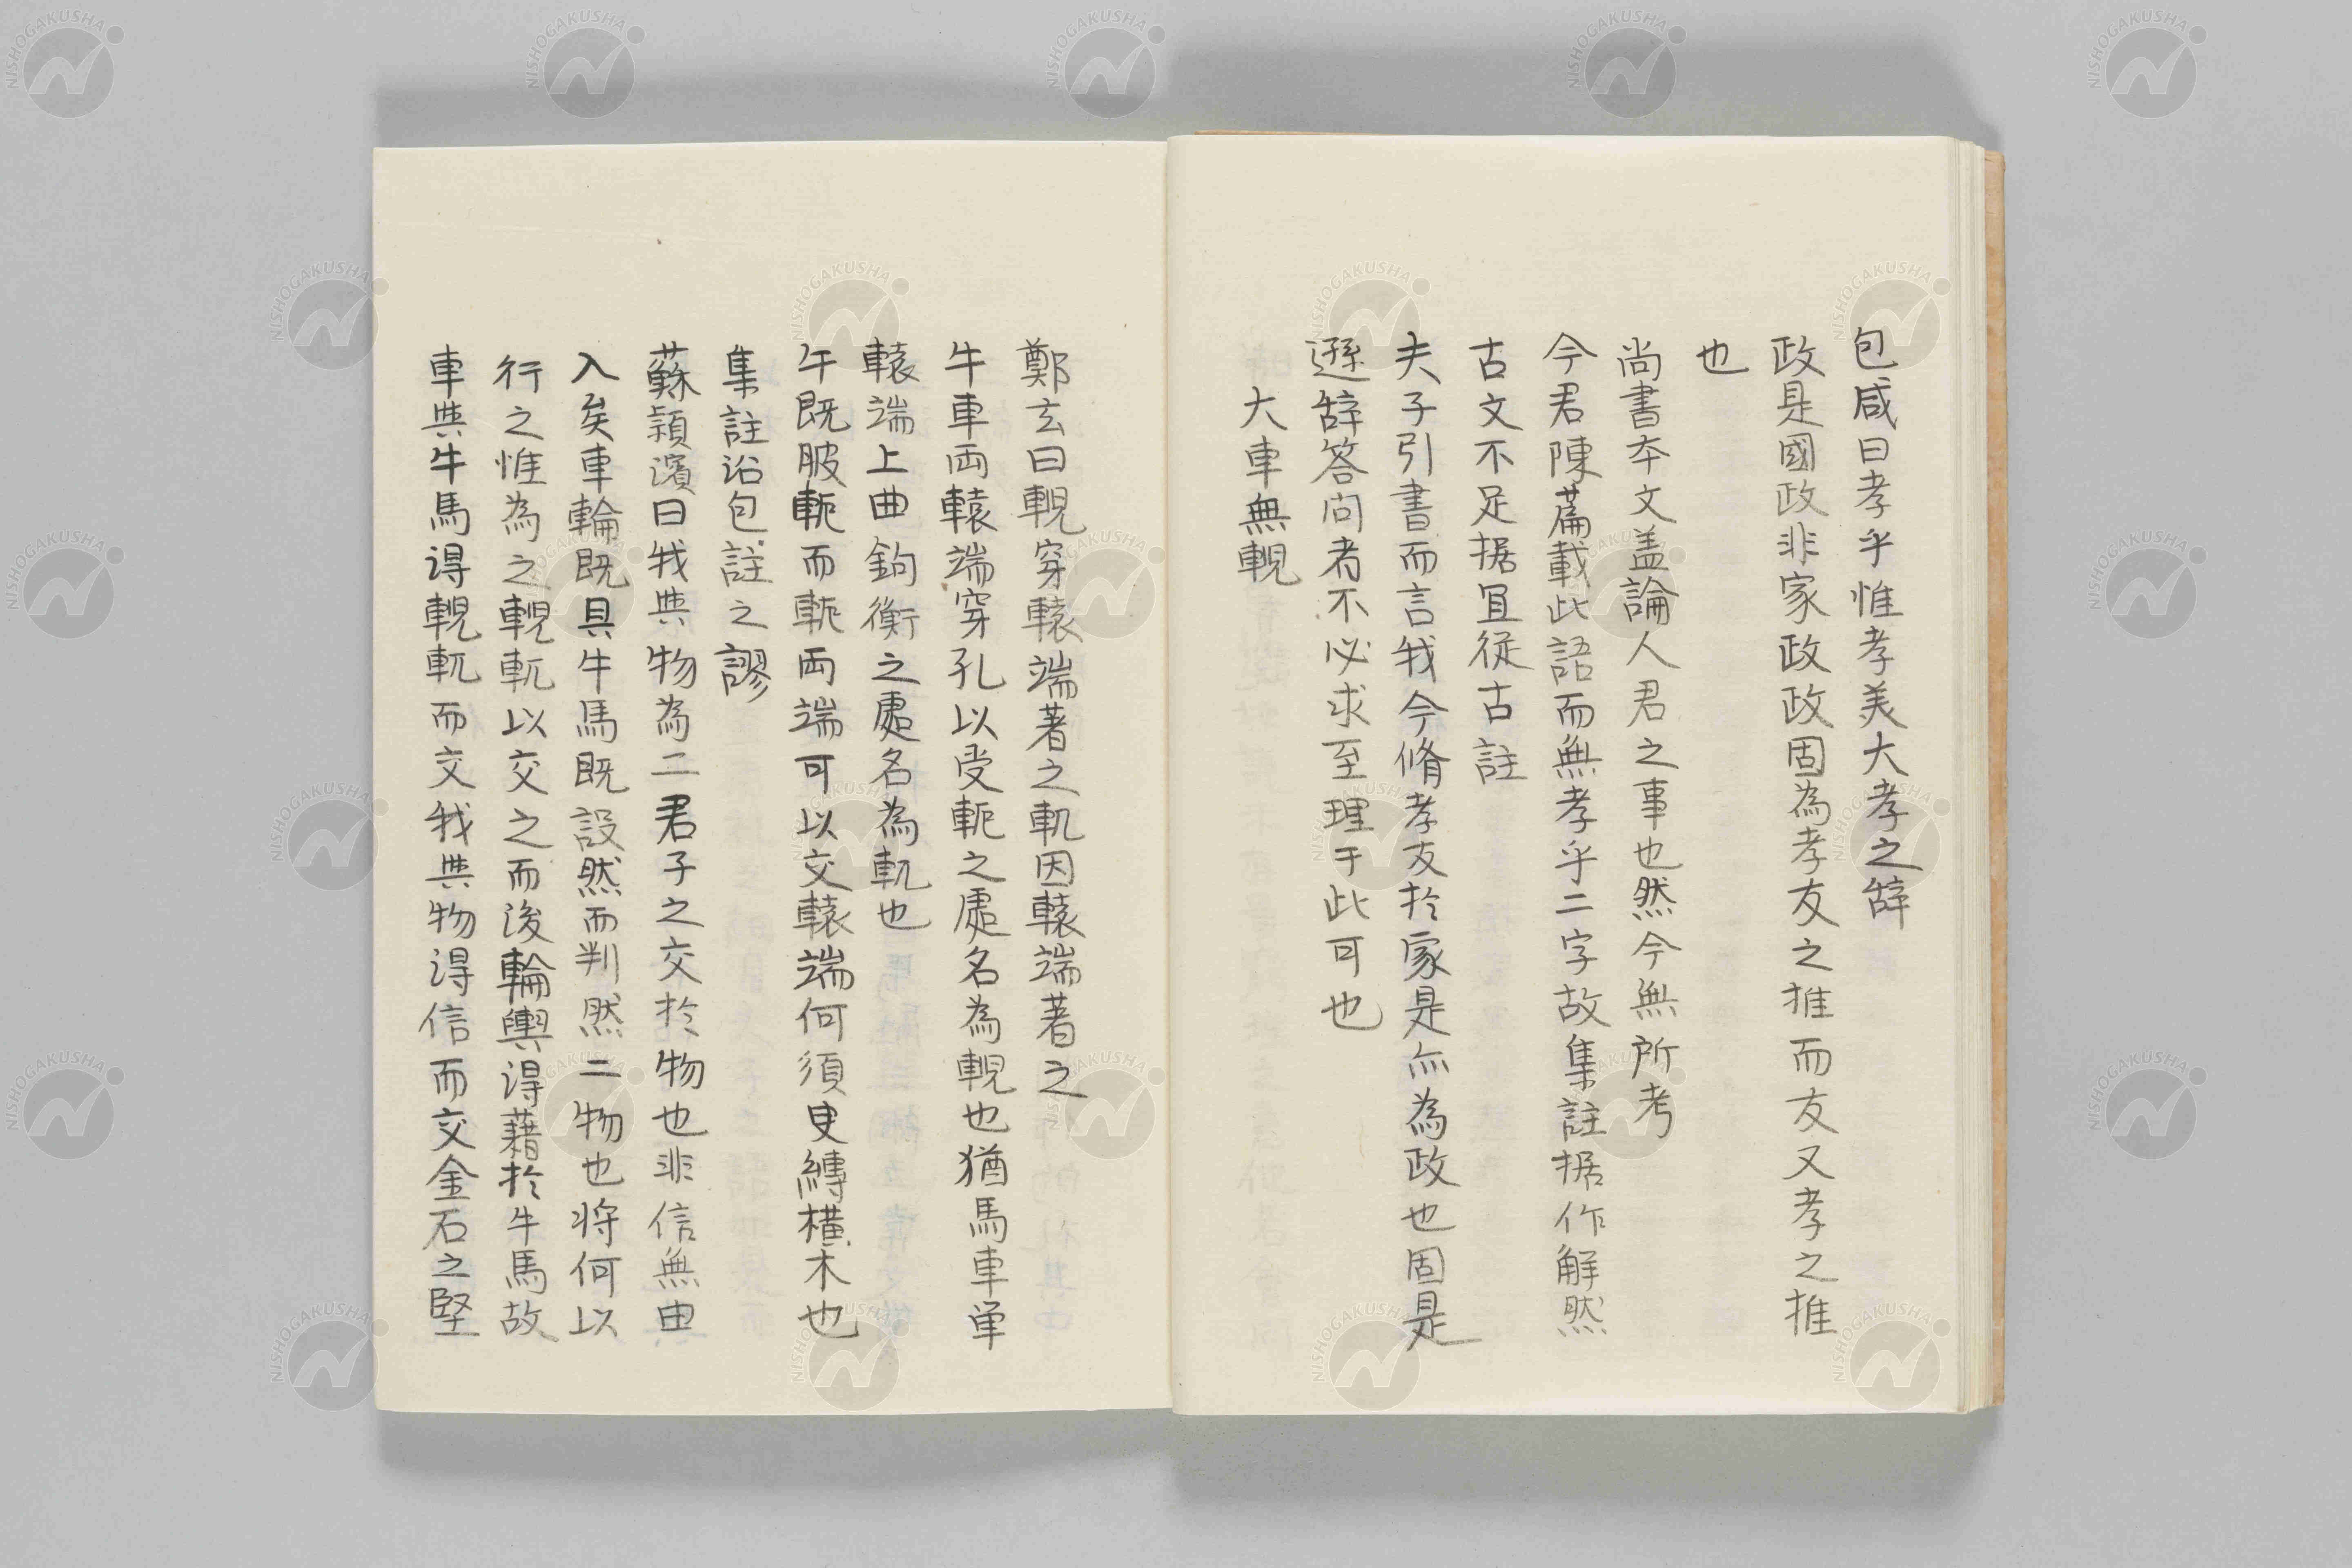 包咸曰孝乎惟孝美大孝之辭
政是國政非家政政固為孝友之推而友又孝之推
也
尚書本文蓋論人君之事也然今無所考
今君陳篇載此語而無孝乎二字故集註据作解然
古文不足据宜從古註
夫子引書而言我今脩孝友於家是亦為政也固是
遜辭答問者不必求至理于此可也
大車無輗
鄭玄曰輗穿轅端著之軏因轅端著之
牛車両轅端穿孔以受軛之處名為輗也猶馬車単
轅端上曲鉤衡之處名為軏也
午既服軛而軛両端可以交轅端何須更縛横木也
集註沿包註之謬
蘇潁濱曰我與物為二君子之交於物也非信無由
入矣車輪既具牛馬既設然而判然二物也将何以
行之惟為之輗軏以交之而後輪輿得藉於牛馬故
車與牛馬得輗軏而交我與物得信而交金石之堅
NISHOGAKUSHA